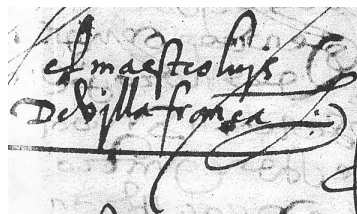 el maestro luys
De villafranca